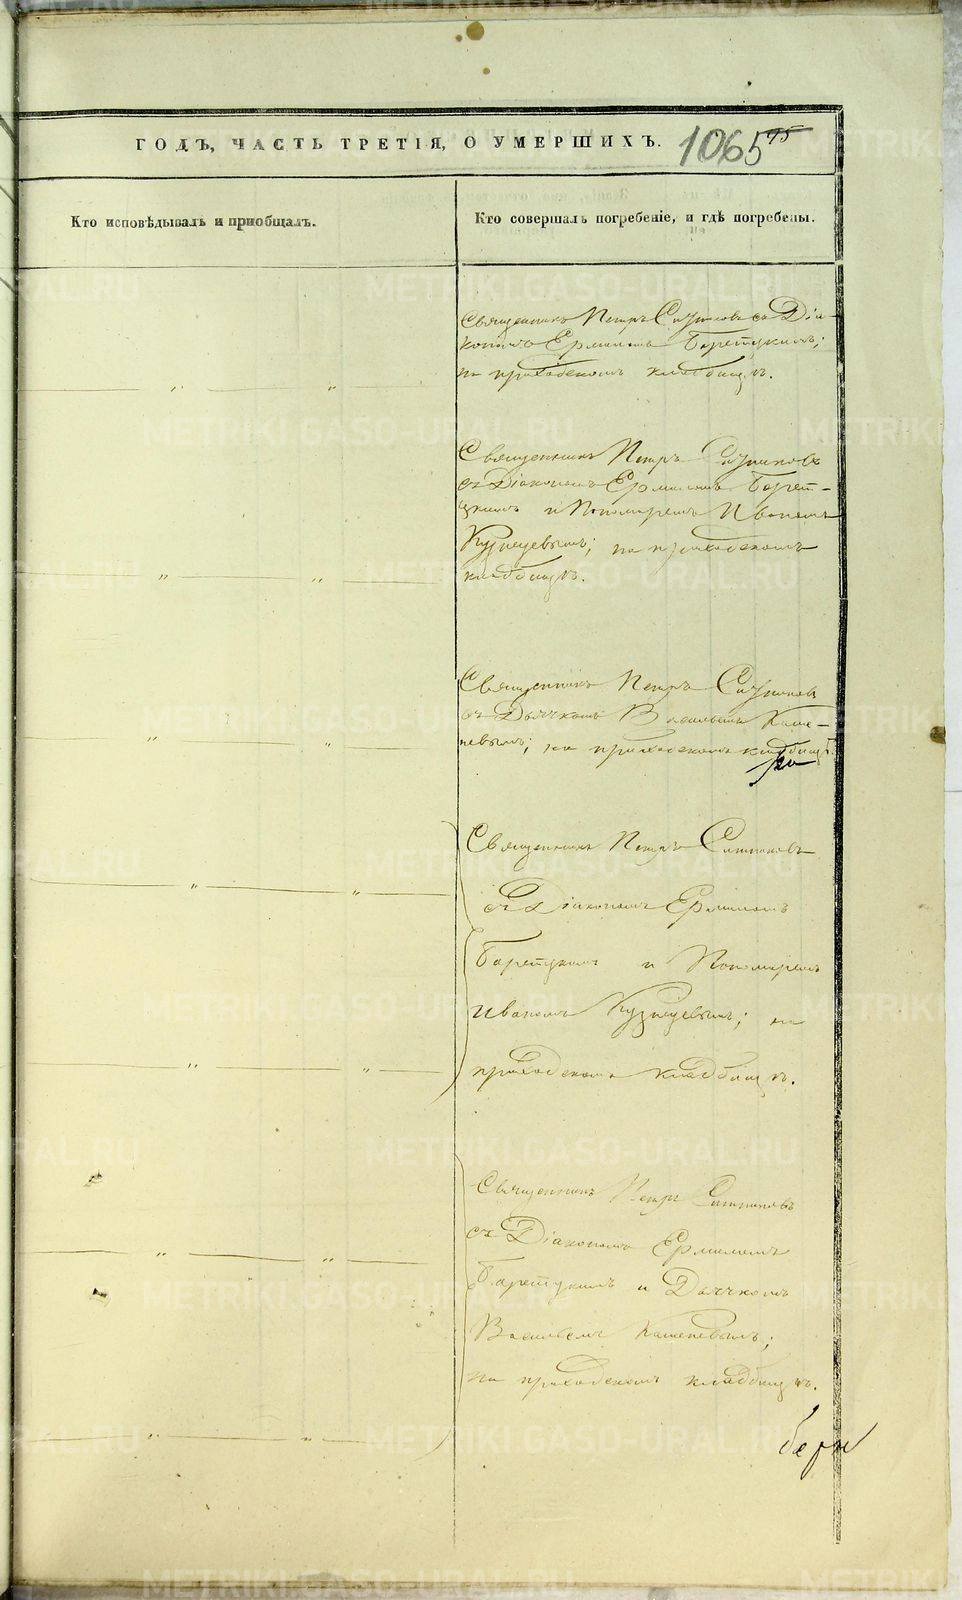 ГОДЪ, ЧАСТЬ ТРЕТІЯ, О УМЕРШИХЪ.
1065
95
Кто исповѣдывалъ и приобщалъ.
Кто совершалъ погребеніе, и гдѣ погребены.
Священникъ Петръ Ситниковъ съ Діа-
кономъ Ермиломъ Баретскимъ;
на приходскомъ кладбищѣ.
Священникъ Петръ Ситниковъ
съ Діакономъ Ермиломъ Барет-
скимъ и Пономаремъ Иваномъ
Кузнецовымъ; на приходскомъ
кладбищѣ.
Священникъ Петръ Ситниковъ
съ Дьячкомъ Васильемъ Каше-
невымъ; на приходскомъ кладбищѣ.
Священникъ Петръ Ситниковъ
съ Діакономъ Ермиломъ
Баретскимъ и Пономаремъ
Иваномъ Кузнецовымъ; на
приходскомъ кладбищѣ.
Священникъ Петръ Ситниковъ
съ Діакономъ Ермиломъ
Баретскимъ и Дьячкомъ
Васильемъ Кашеневымъ;
на приходскомъ кладбищѣ.
METRIKI.GASO-URAL.RU